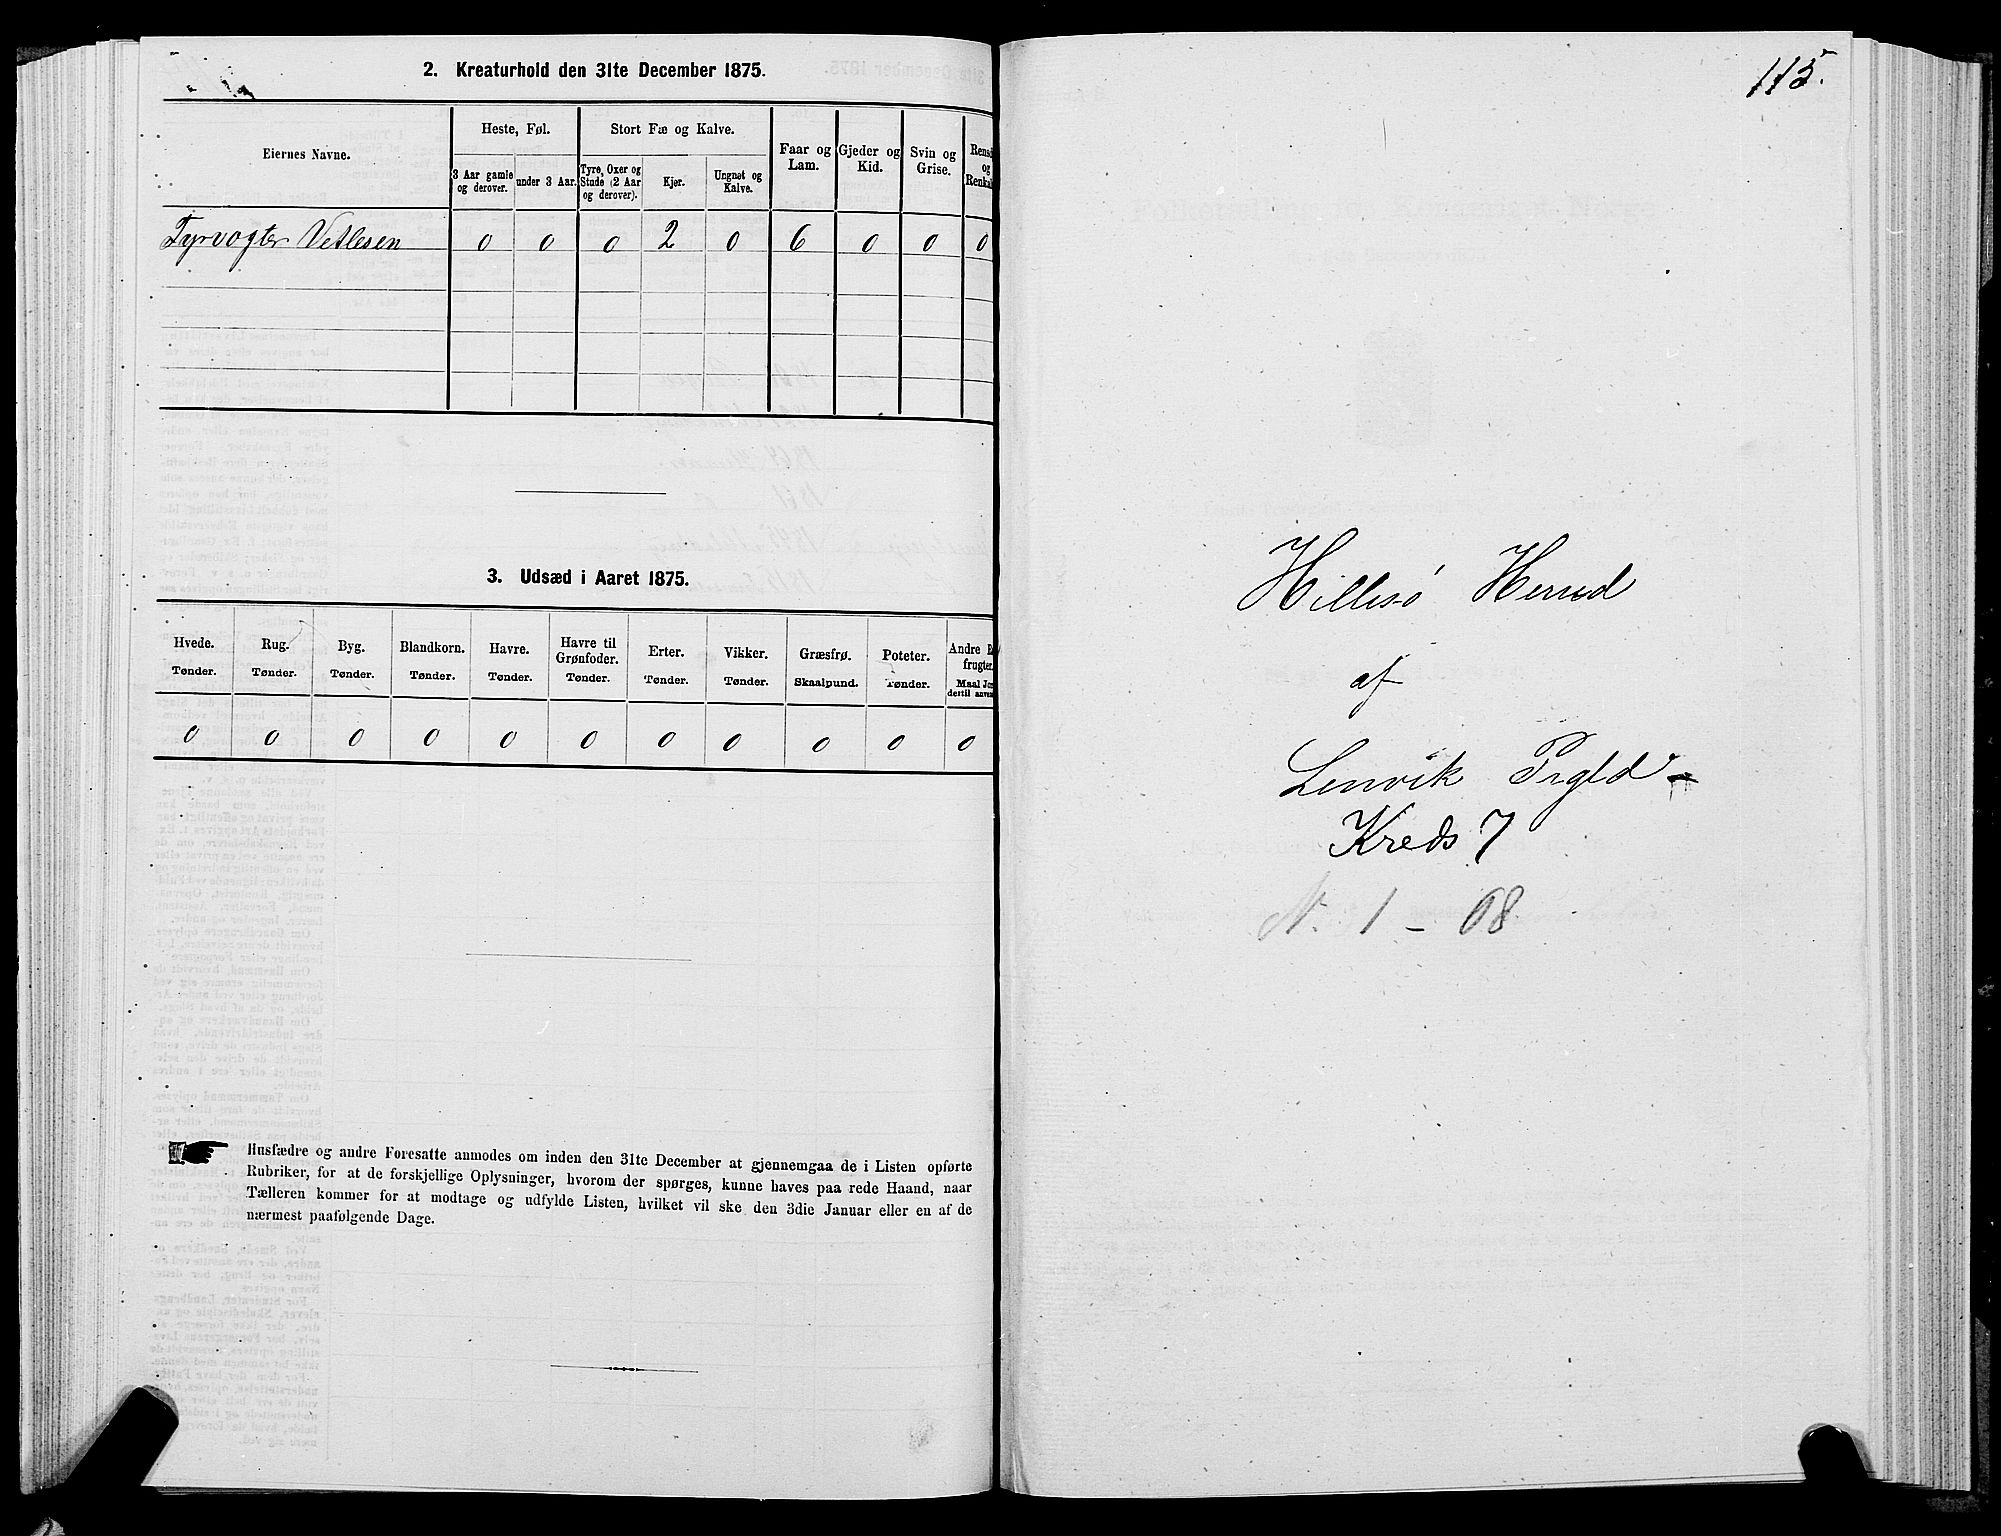 2. Kreaturhold den 31te December 1875.
Eiernes Navne.
Heste, Føl.
Stort Fæ og Kalve.
Faar og
Lam.
Gjeder og
Kid.
Svin og
Grise.
og
3 Aar gamle
og derover.
under 3 Aar.
Tyre, Oxer og
Stude (2 Aar
og derover).
Kjør.
Ungnøt og
Kalve.
Fyrvogter Vetlesen 0 0 0 2 0 6 0 0 0
3. Udsæd i Aaret 1875.
Hvede.
Tønder.
Rug.
Tønder.
Byg.
Tønder.
Blandkorn.
Tønder.
Havre.
Tønder.
Havre til
Grønfoder.
Tønder.
Erter.
Tønder.
Vikker.
Tønder.
Græsfrø.
Skaalpund.
Poteter.
Tønder.
Andre
frugter.
Maal
dertil
0 0 0 0 0 0 0 0 0 0 0
Husfædre og andre Foresatte anmodes om inden den 31te December at gjennemgaa de i Listen opførte
Rubriker, for at de forskjellige Oplysninger, hvorom der spørges, kunne haves paa rede Haand, naar
Tælleren kommer for at modtage og udfylde Listen, hvilket vil ske den 3die Januar eller en af de
nærmest paafølgende Dage.
115.
Hillesö Herred
af
Lenvik Prgld
Kreds 7
N. 1 - 68